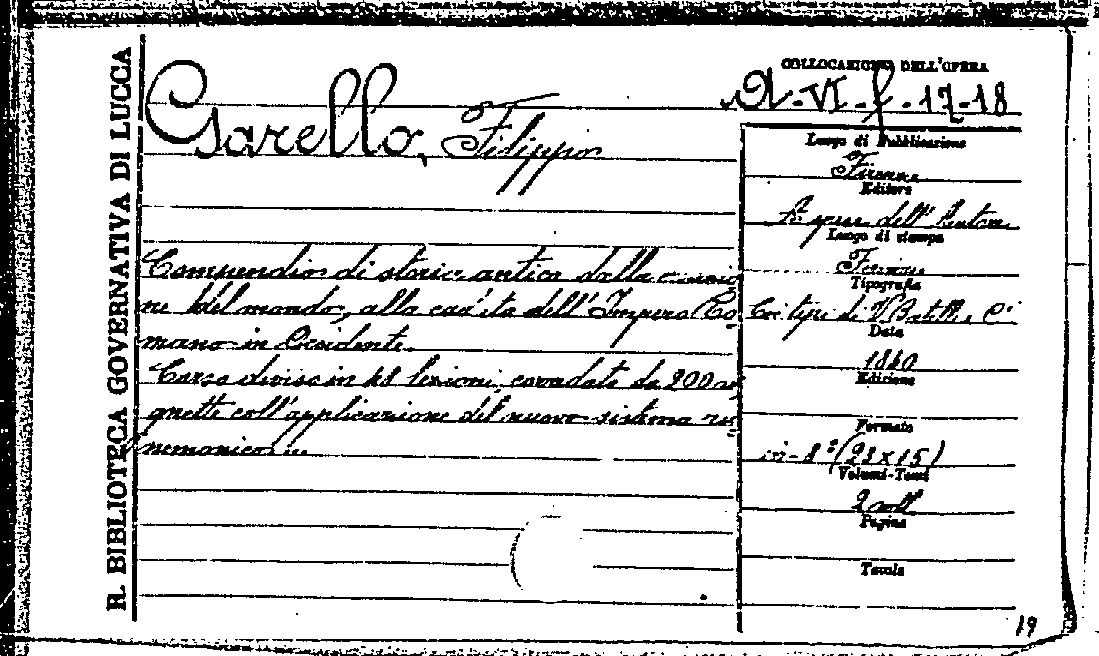 R. BIBLIOTECA GOVERNATIVA DI LUCCA
Garello, Filippo
Compendio di storia antica dalla creazio
ne del mondo, alla caduta dell'Impero Ro
mano in Occidente.
Corso diviso in 48 lezioni, corredate da 200 vi
gnette coll'applicazione del nuovo sistema m
nemonico...
COLLOCAZIONE DELL'OPERA
A-VI-f-17-18
Luogo di Pubblicazione
Firenze
Editore
A spese dell'Autore
Luogo di stampa
Firenze
Tipografia
Coi tipi di V. Batelli e C.i
Data
1840
Edizione
Formato
in-8° (23x15)
Volumi-Tomi
2 voll.
Pagine
Tavole
19